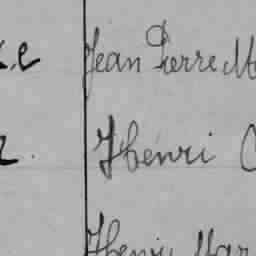 Jean Pierre M
Henri C
Henri Mar